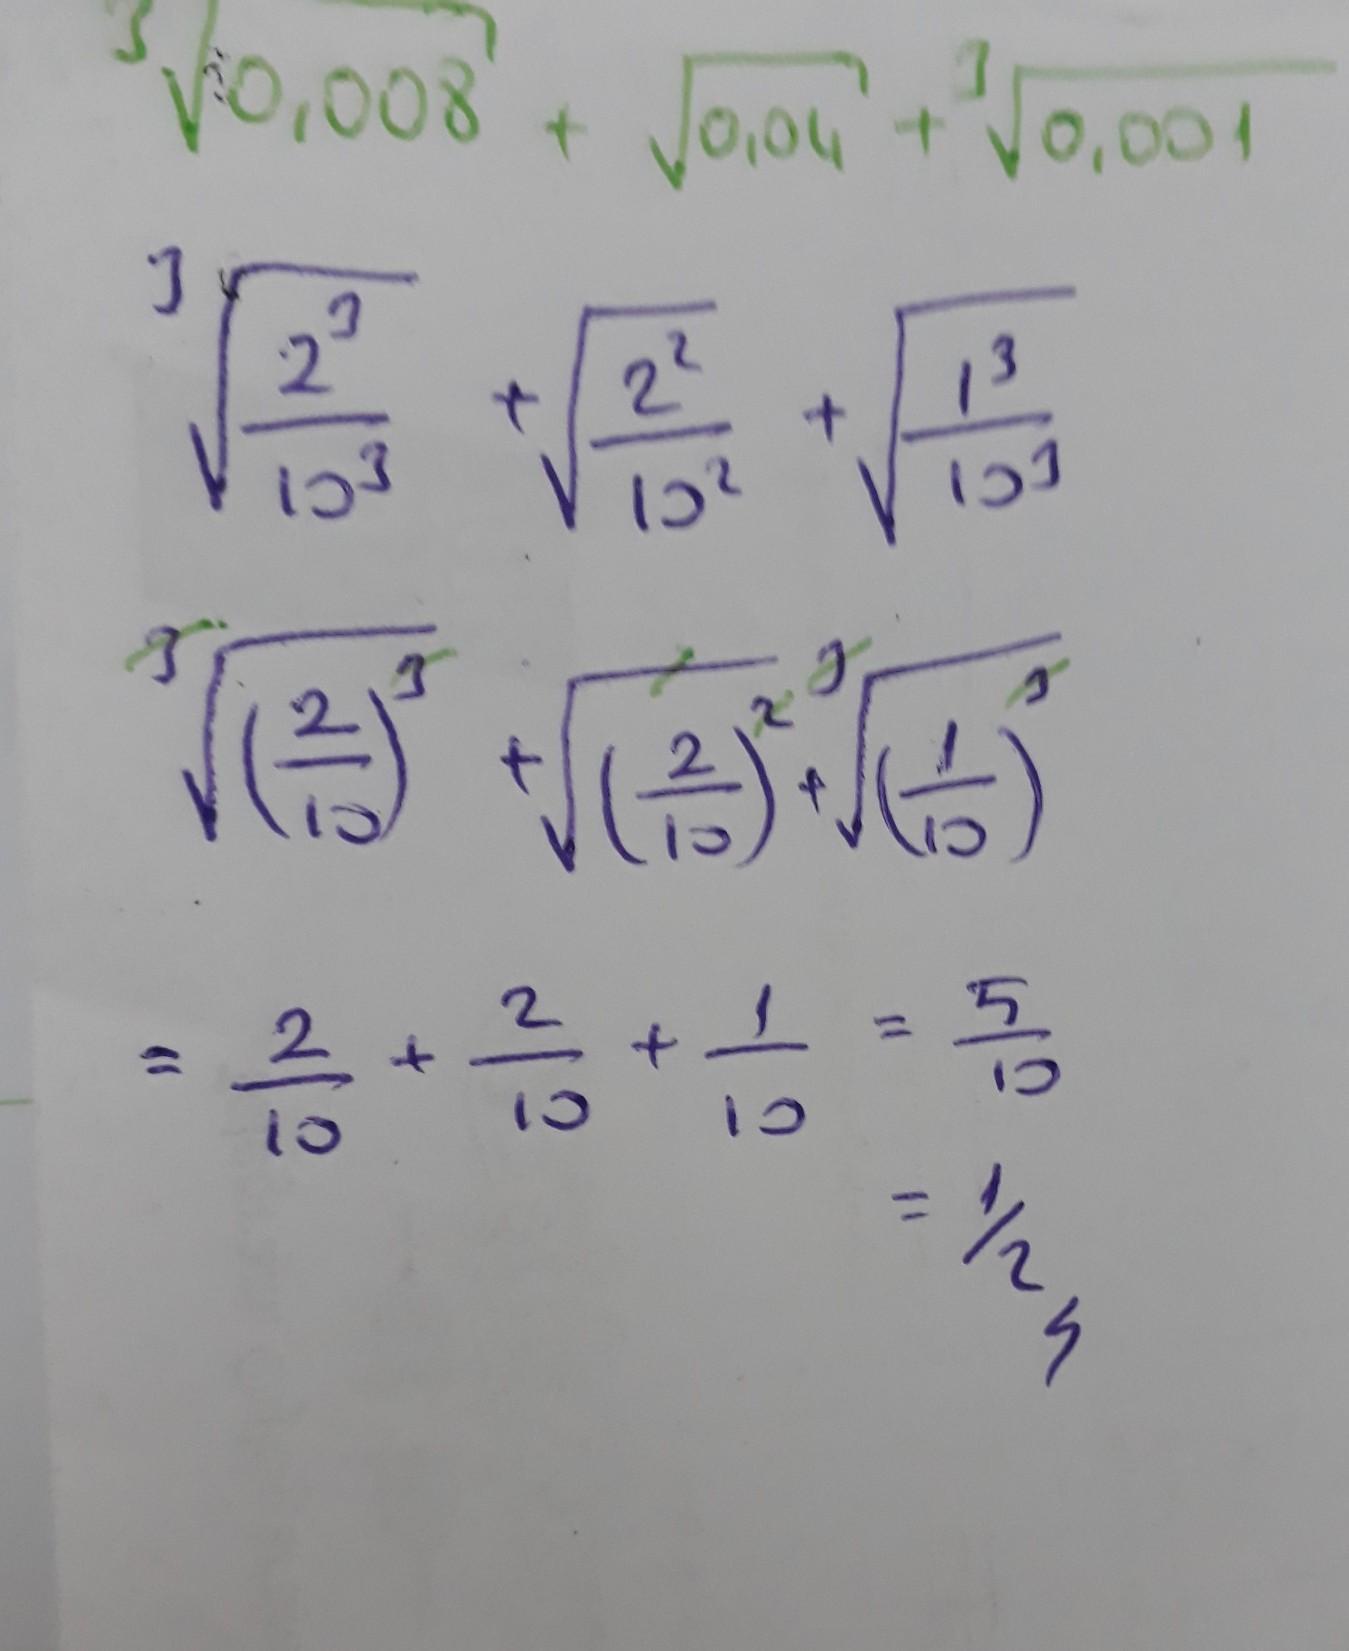 ∛0,008 + √0,04 + ∛0,001
∛(2³/10³) + √(2²/10²) + √(1³/10³)
∛(2/10)³ + √(2/10)² + ∛(1/10)³
= 2/10 + 2/10 + 1/10 = 5/10
= 1/2